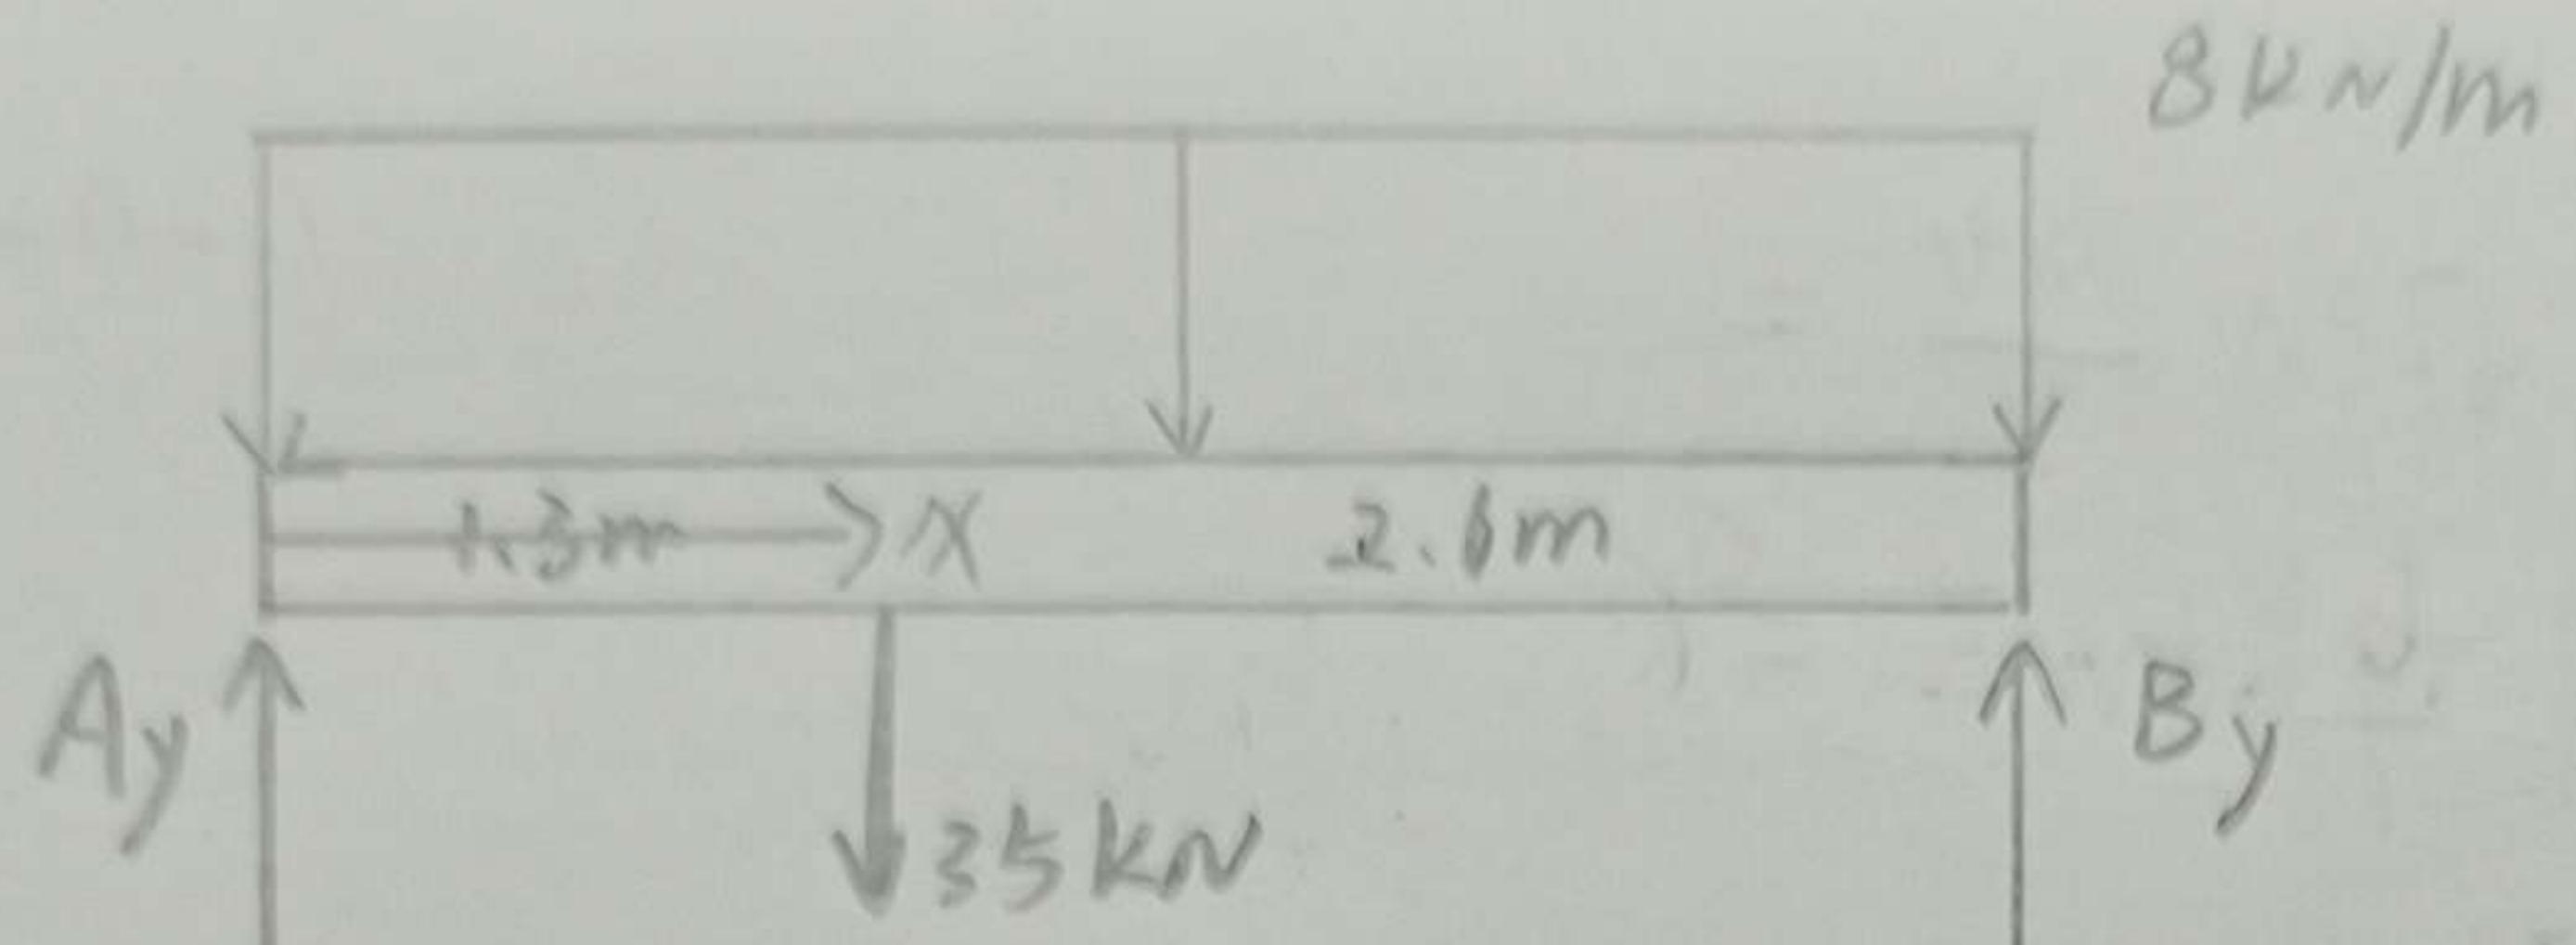 8kN/m
1.3m X 2.6m
Ay By
35kN